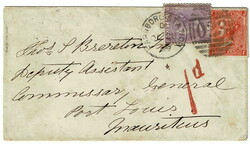 Thos S Brereton
Deputy Assistant
Commissary General
Port Louis
Mauritius
1d